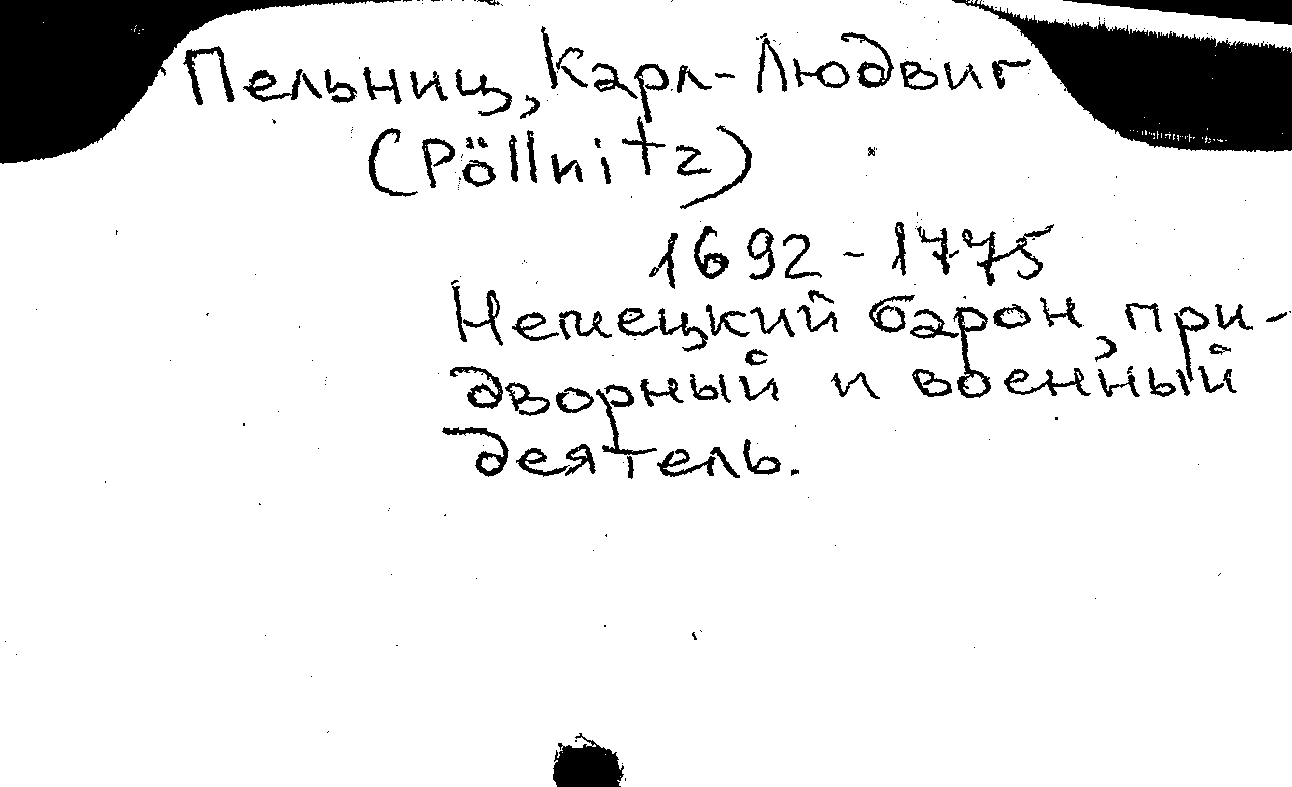 Пельниц, Карл-Людвиг
(Pöllnitz)
1692 - 1775
Немецкий барон, при-
дворный и военный
деятель.